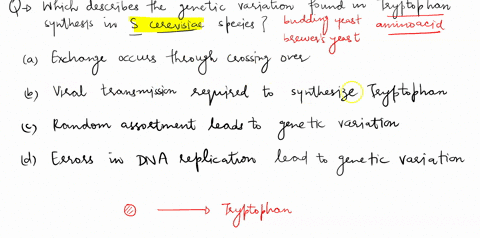 Q→ Which describes the genetic variation found in Tryptophan
synthesis in S cerevisiae species? budding yeast aminoacid
brewer's yeast
(a) Exchange occurs through crossing over
(b) Viral transmission required to synthesize Tryptophan
(c) Random assortment leads to genetic variation
(d) Errors in DNA replication lead to genetic variation
→ Tryptophan